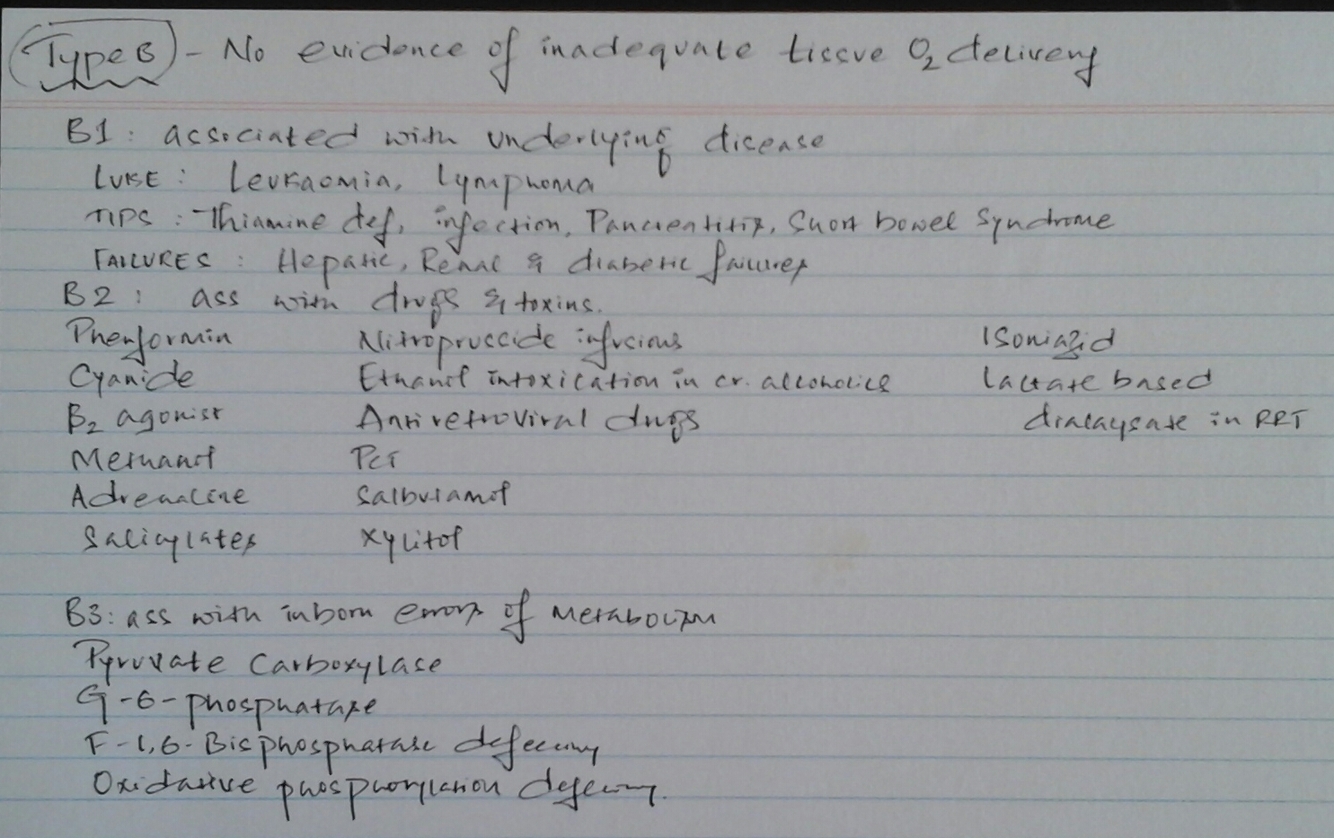 Type B - No evidence of inadequate tissue O2 delivery
B1: associated with underlying disease
LUKE: Leukaemia, Lymphoma
TIPS: Thiamine def, infection, Pancreatitis, Short bowel Syndrome
FAILURES: Hepatic, Renal & diabetic failures
B2: ass with drugs & toxins.
Phenformin Nitroprusside infusions Isoniazid
Cyanide Ethanol intoxication in cr. alcoholics Lactate based
B2 agonist Antiretroviral drugs dialaysate in RRT
Methanol PCT
Adrenaline Salbutamol
Salicylates Xylitol
B3: ass with inborn errors of Metabolism
Pyruvate Carboxylase
G-6-phosphatase
F-1,6-Bisphosphatase
Oxidative phosphorylation